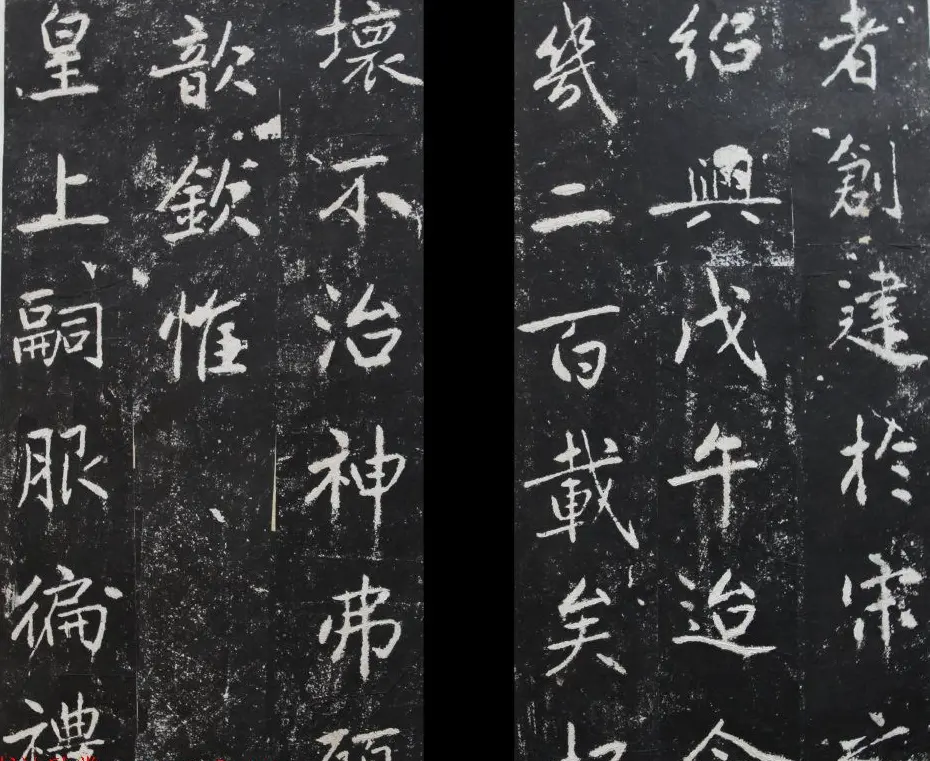 者創建於宋
紹興戊午迨今
幾二百載矣
壞不治神弗
歆欽惟
皇上嗣服徧禮